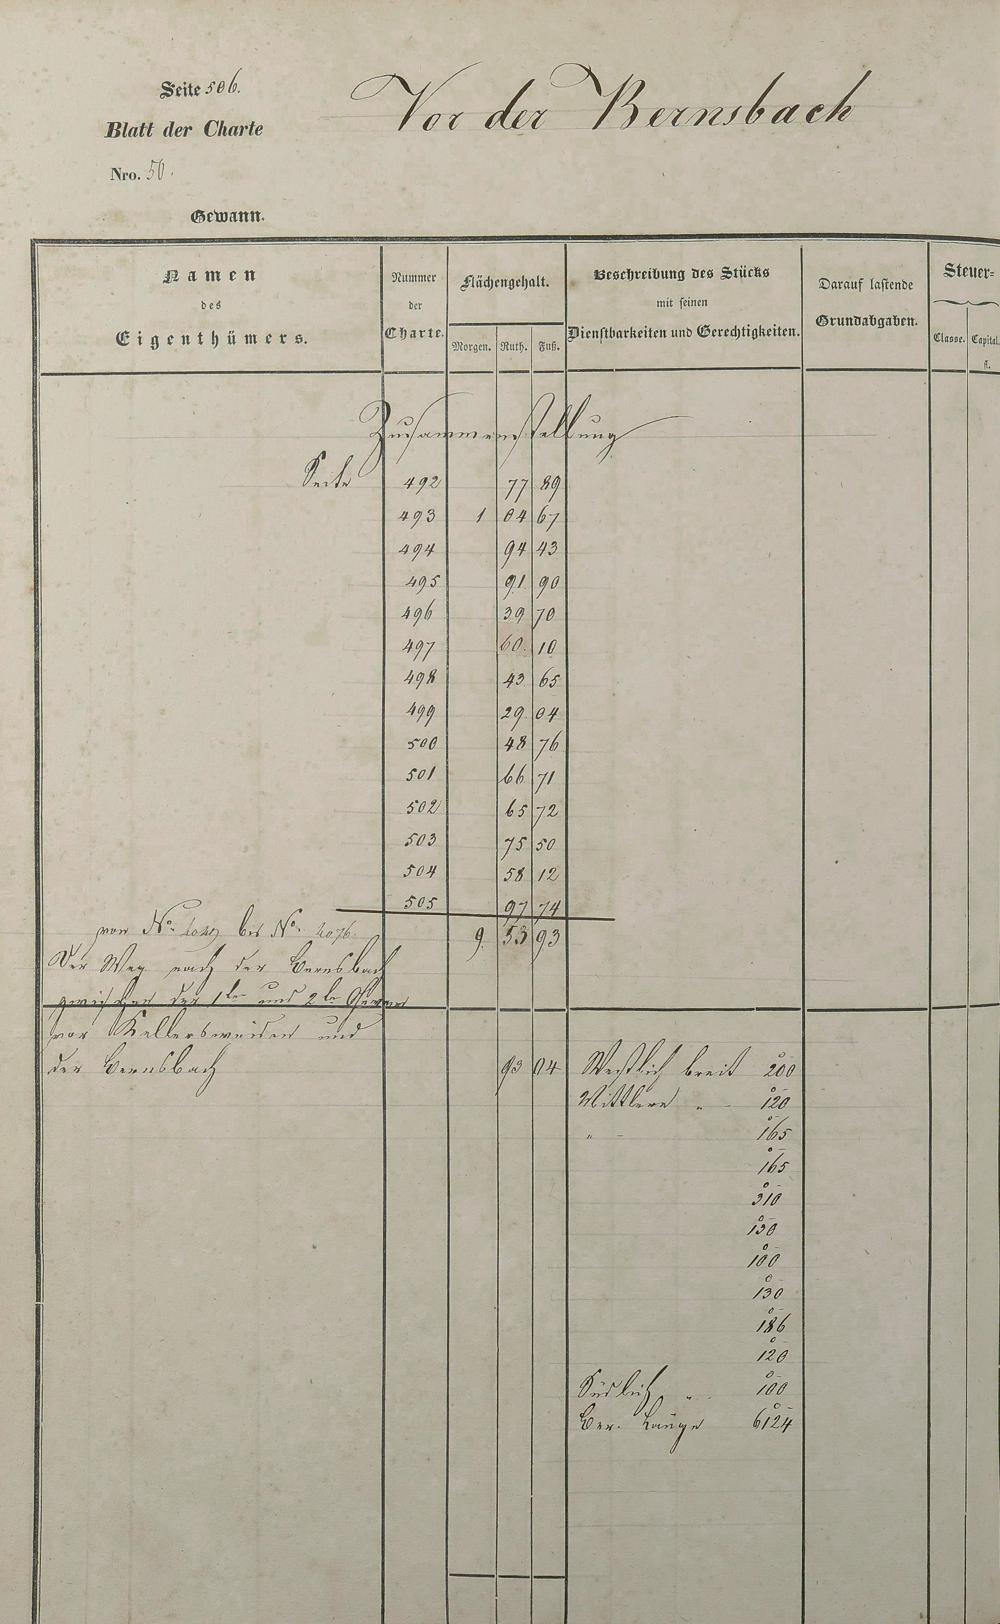 Seite 506.
Vor der Bernsbach
Blatt der Charte
Nro. 50.
Gewann.
Namen des Eigenthümers.
Nummer der Charte.
Flächengehalt.
Morgen. Ruth. Fuß.
Beschreibung des Stücks mit seinen Dienstbarkeiten und Gerechtigkeiten.
Darauf lastende Grundabgaben.
Steuer-
Classe. Capital.
fl.
Zusammenstellung
Seite 492 77 89
493 1 04 67
494 94 43
495 91 90
496 39 70
497 60. 10
498 43 65
499 29 04
500 48 76
501 66 71
502 65 72
503 75 50
504 58 12
505 97 74
von No. bis No. 2076.
9. 53 93
Der Weg nach der Bernsbach
zwischen der 1te und 2te Gewann
vor Kellersweiden und
der Bernsbach 93 04 Westlich breit 200
Mittlere " 120
" 165
165
310
130
100
130
186
120
Südlich " 100
Ber. Länge 6124